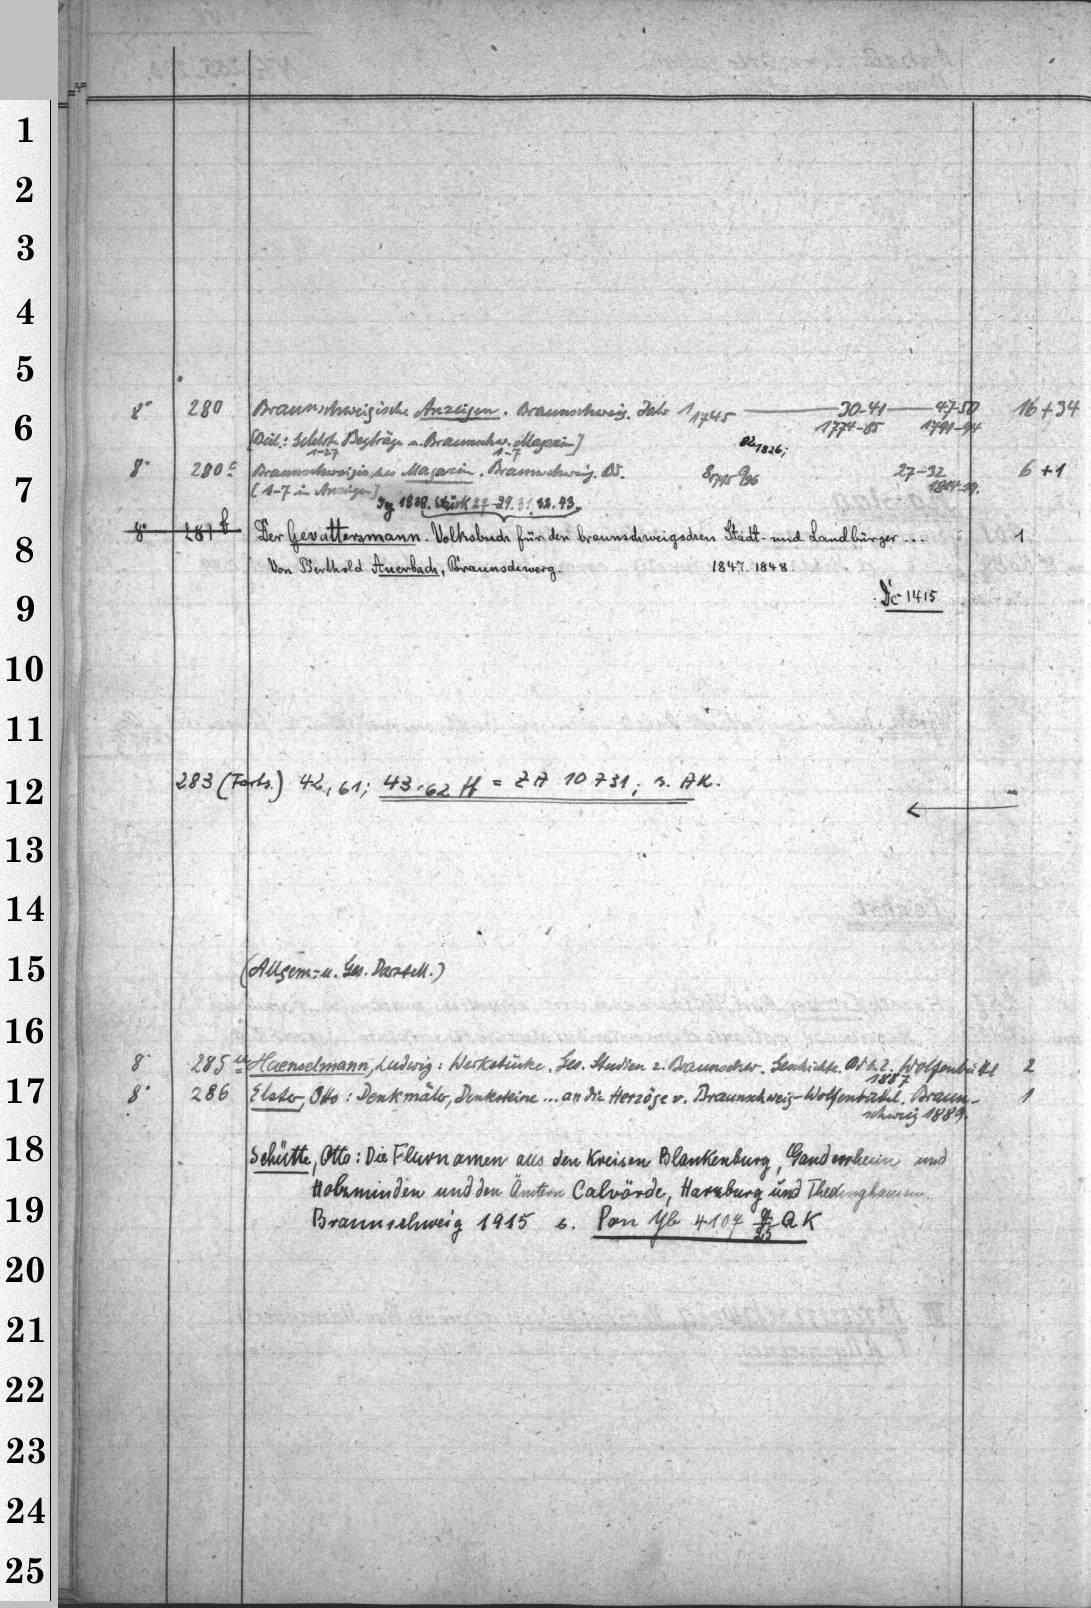 1
2
3
4
5
8° 280 Braunschweigische Anzeigen. Braunschweig. Jahr 1 1745 — 30-41 — 47-50 16+34
6
1774-85 1791-94
[Beil.: Gelehrte Beyträge u. Braunschw. Magazin]
1-27 1-7
82 1826;
8° 280c Braunschweigisches Magazin. Braunschweig. Bd. 8 1795 9 96 27-32 6+1
1814-19.
7
[1-7 in Anzeigen]
Jg 1828. Stück 27-29.31.32.43.
8° 281b Der Gevattersmann. Volksbuch für den braunschweigschen Stadt- und Landbürger ... 1
8
Von Berthold Auerbach, Braunschweig. 1847. 1848.
Dc 1415
9
10
11
283 (Forts.) 42, 61; 43.62 ff = ZA 10731; s. AK.
12
13
14
(Allgem. u. Ges. Darstell.)
15
16
8° 285 Haenselmann, Ludwig: Werkstücke. Ges. Studien z. Braunschw. Geschichte. Bd 1.2. Wolfenbüttel 2
1887
17
8° 286 Elster, Otto: Denkmäler, Denksteine ... an die Herzöge v. Braunschweig-Wolfenbüttel. Braun- 1
schweig 1889.
18
Schütte, Otto: Die Flurnamen aus den Kreisen Blankenburg, Gandersheim und
Holzminden und den Ämtern Calvörde, Harzburg und Thedinghausen.
19
Braunschweig 1915 s. Pon Yb 4107 QK
20
21
22
23
24
25